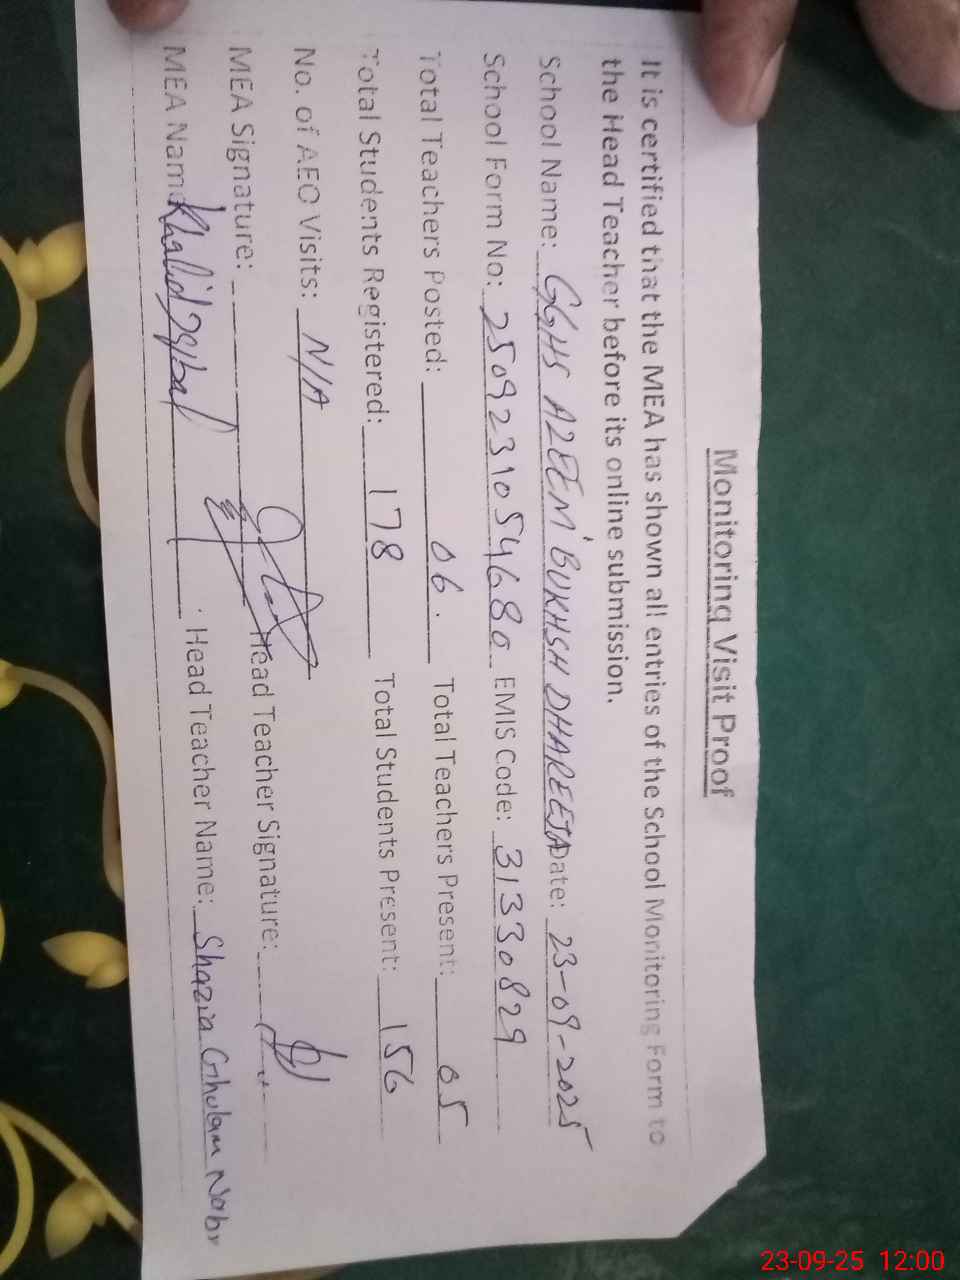 Monitoring Visit Proof
It is certified that the MEA has shown all entries of the School Monitoring Form to
the Head Teacher before its online submission.
School Name: GGHS AZEEM BUKHSH DHAREEJA Date: 23-09-2025
School Form No: 2509231054680 EMIS Code: 31330829
Total Teachers Posted: 06. Total Teachers Present: 05
Total Students Registered: 178 Total Students Present: 156
No. of AEO Visits: N/A
MEA Signature: Head Teacher Signature:
MEA Name: Khalid Iqbal Head Teacher Name: Shazia Ghulam
23-09-25 12:00